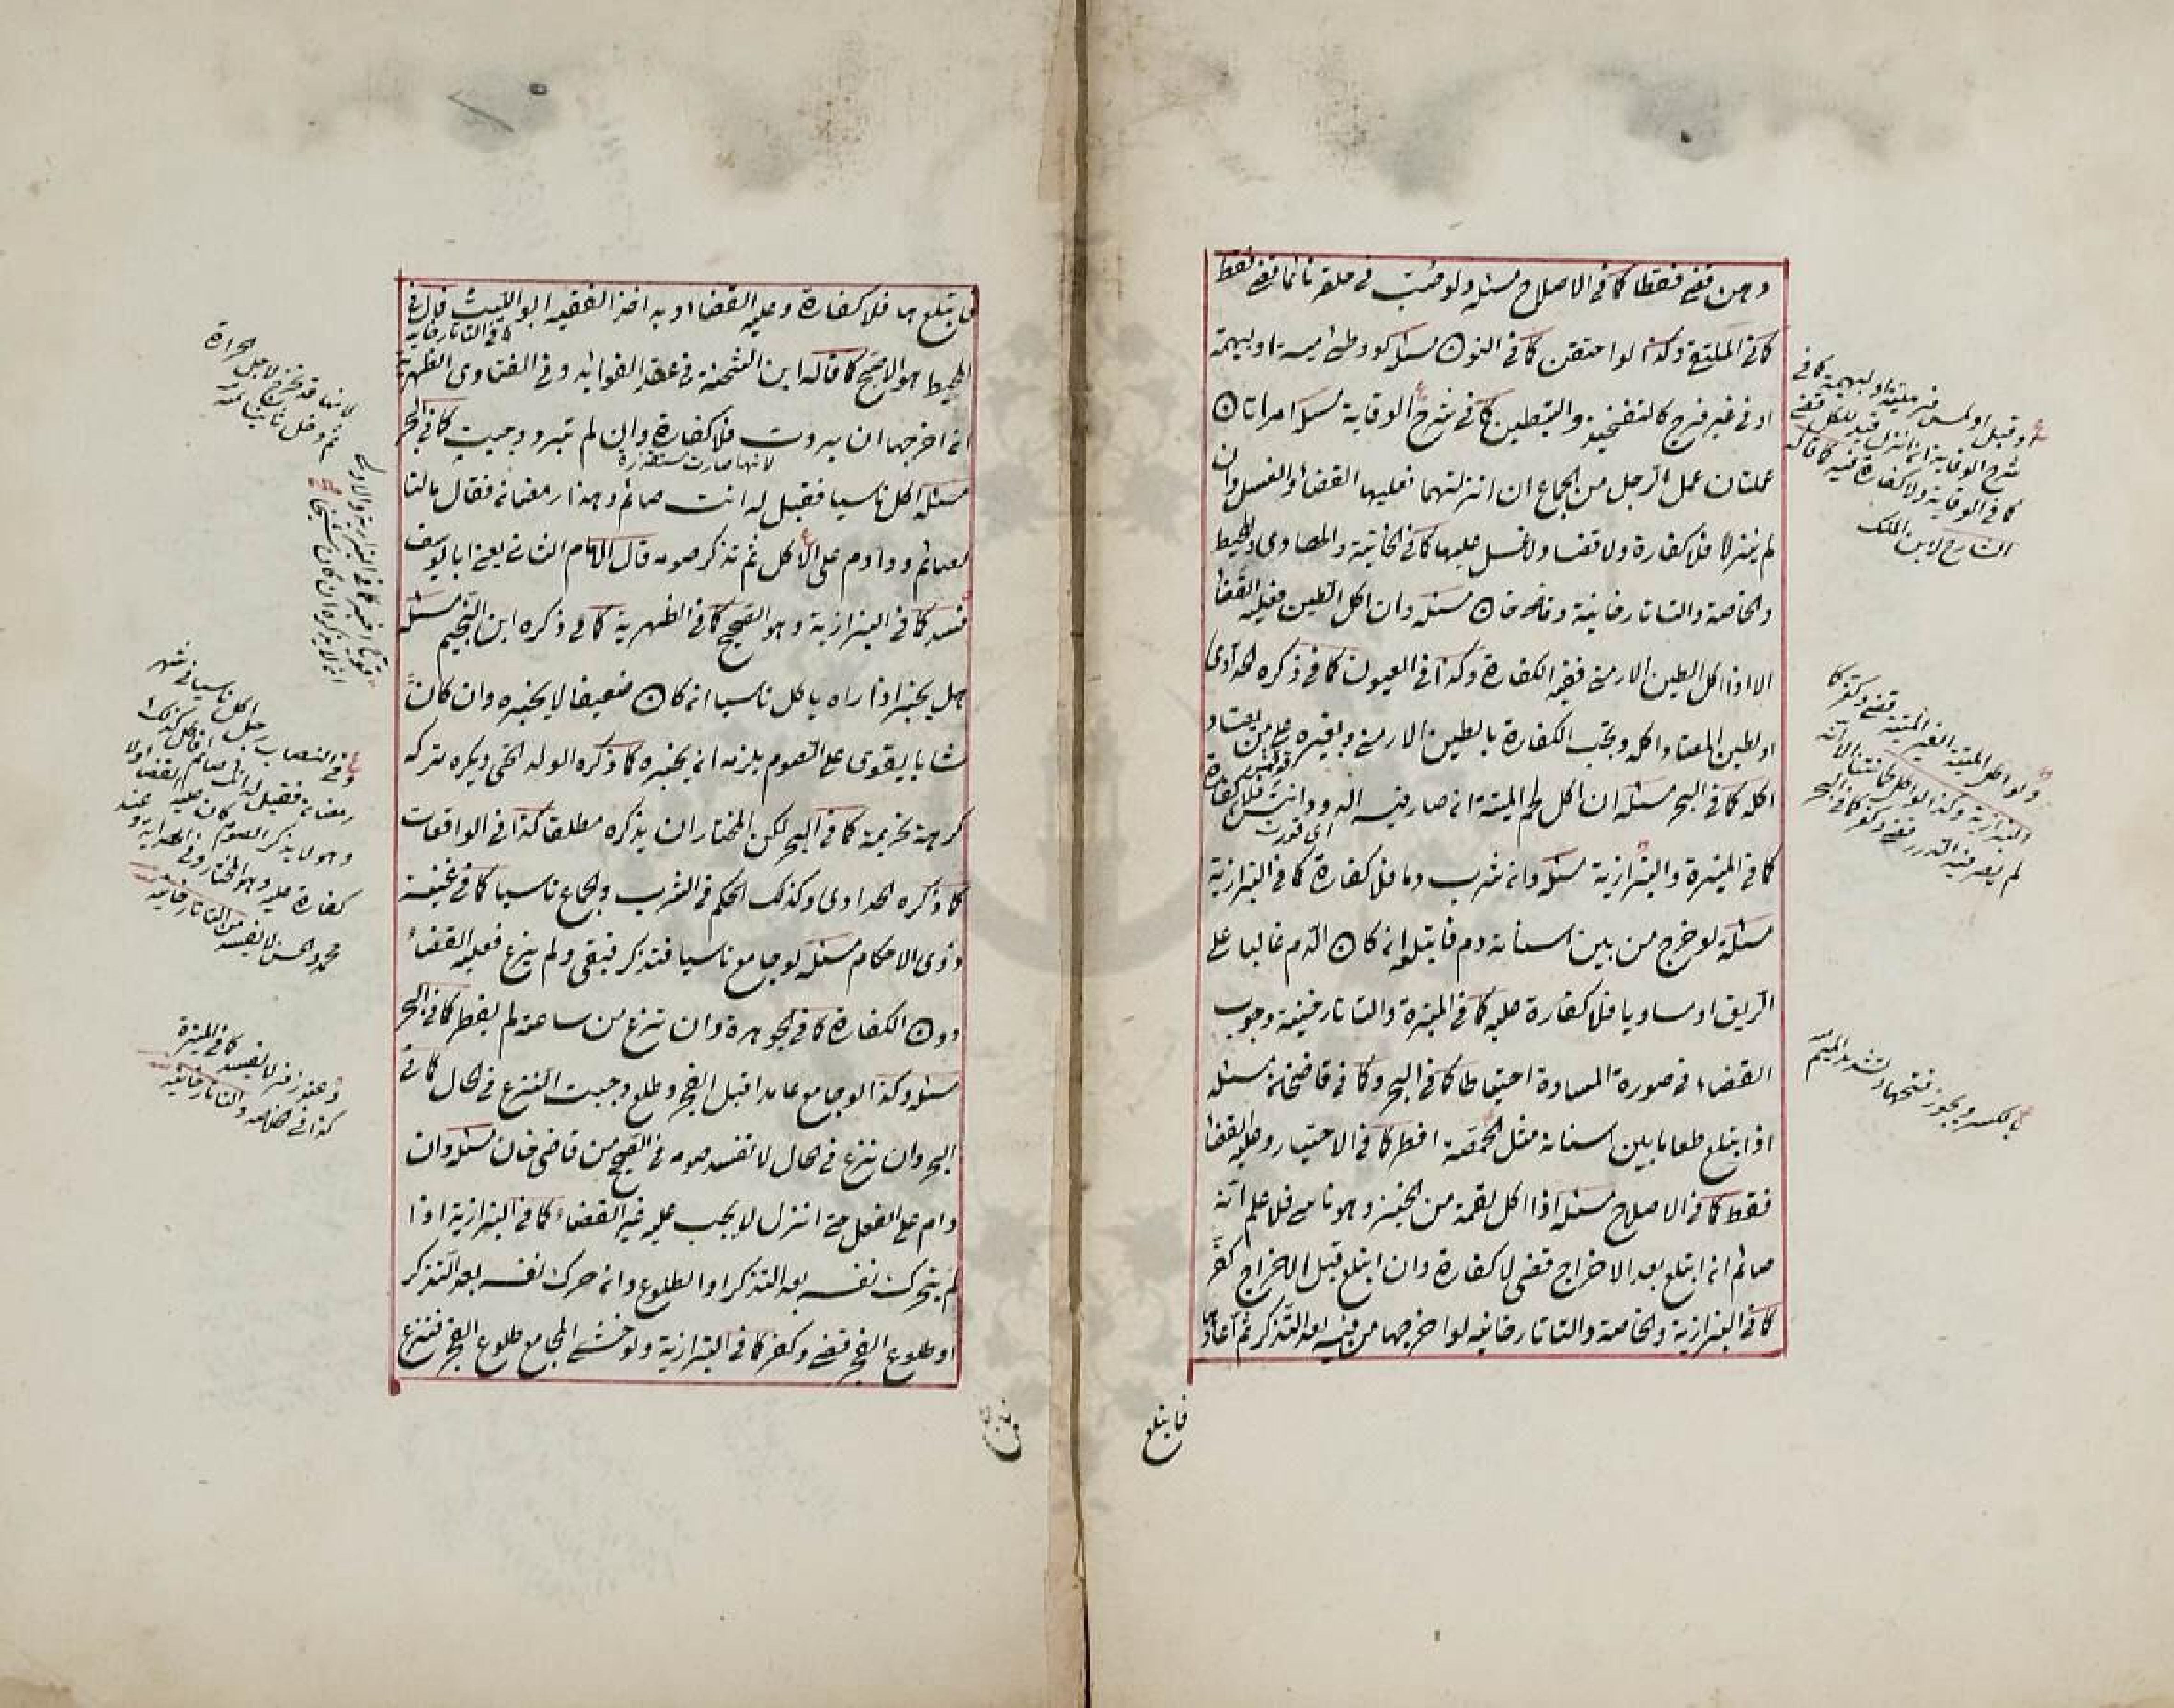 دهن قضى فقط كما فى الاصلاح مسئله ولو صُبّ فى حلقه نائما قضى فقط
كما فى الملتقى وكذا لو احتقن كما فى النون مسئله كو وطئ ميتة او بهيمة
او فى غير فرج كالتفخيذ والتبطين كما فى شرح الوقاية مسئله امراتان
عملتان عمل الرّجل من الجماع ان انزلتهما فعليهما القضاء والغسل وان
لم ينزلا فلا كفارة ولا قضا ولا غسل عليهما كما فى الخانية والحاوى والمحيط
والخلاصة والتاتارخانية وقاضى خان مسئله وان اكل الطين فعليه القضا
الا اذا اكل الطين الارمنى فعليه الكفارة وكذا فى العيون كما فى ذكره الحدادى
او الطين المعتاد اكله وتجب الكفارة بالطين الارمنى وبغيره على من يعتاد
اكله كما فى البحر مسئله ان اكل لحم الميتة ان صار فيه الدود وانتن فلا كفارة
اى قورت
كما فى المنيرة والبزازية مسئله وان شرب دما فلا كفارة كما فى البزازية
مسئلة لو خرج من بين اسنانه دم فابتلع ان كان الدّم غالبا على
الرّيق او مساويا فلا كفارة عليه كما فى المنيرة والتاتارخنية وجوب
القضاء فى صورة المساوة احتياطا كما فى البحر وكما فى قاضيخان مسئله
اذا ابتلع طعاما بين اسنانه مثل الحمّصة افطر كما فى الاختيار وعليه القضا
فقط كما فى الاصلاح مسئله اذا اكل لقمة من الخبز وهو ناس فلا علم انّه
صائم ان ابتلع بعد الاخراج قضى لا كفارة وان ابتلع قبل الاخراج كفّر
كما فى البزازية والخلاصة والتاتارخانيه لو اخرجها من فيه بعد التّذكر ثم اعادها
فابتلع
او قبل او لمس
شرح الوقاية ان انزل قيد للكل قضى
كما فى الوقاية ولا كفارة فيه كما قاله
الشارح لابن الملك
ولو اكل الميتة الغير المنتنة قضى وكفّر كما
البزازية وكذا لو اكل لحما نتنا الا انّه
لم يصر فيه الدّود قضى وكفّر كما فى البحر
بالكسر ويجوز فتحها وتشديد الميم
فابتلعها فلا كفارة وعليه القضاء وبه اخذ الفقيه ابو الليث قال فى
كما فى التاتارخانيه
المحيط هو الاصحّ كما قاله ابن الشحنة فى عقد الفوائد وفى الفتاوى الظهرية
ان اخرجها ان بردت فلا كفارة وان لم تبرد وجبت كما فى البحر
لانها صارت مستقذرة
مسئله اكل ناسيا فقيل له انت صائم وهذا رمضان فقال ما انا
بصائم وداوم على الاكل ثم تذكر صومه قال الامام الثانى يعنى ابا يوسف
فسد كما فى البزازية وهو الصّحيح كما فى الظهرية كما فى ذكره ابن النّجيم مسئله
هل يخبر اذا راه ياكل ناسيا ان كان ضعيفا لا يخبره وان كان
شابا يقوى على الصّوم يلزمه ان يخبره كما ذكره الولوالجى ويكره تركه
كرهة تحريمة كما فى البحر لكن المختار ان يذكره مطلقا كذا فى الواقعات
كما ذكره الحدادى وكذلك الحكم فى الشرب والجماع ناسيا كما فى غنيفة
وذوى الاحكام مسئله لو جامع ناسيا فتذكر فبقى ولم ينزع فعليه القضاء
دون الكفارة كما فى الجوهرة وان نزع من ساعة لم يفطر كما فى البحر
مسئله وكذا لو جامع عامدا قبل الفجر وطلع وجبت النّزع فى الحال كما فى
البحر وان نزع فى الحال لا تفسد صومه فى الصّحيح من قاضى خان مسئله وان
دام على الفعل حتى انزل لا يجب عليه غير القضاء كما فى البزازية اذا
لم يتحرك نفسه بعد التذكر او الطلوع وان حرك نفسه بعد التذكر
او طلوع الفجر قضى وكفر كما فى البزازية ولو خشى المجامع طلوع الفجر فنزع
لانها قد تخرج لاجل الحرارة
ثم دخل ثانيا منه
وفى النصاب رجل اكل ناسيا فى شهر
رمضان فقيل له انك صائم
وهو لا يذكر الصوم كان عليه القضاء ولا
كفارة عليه وهو المختار وفى الهداية وعند
محمد والحسن لا يفسد من التاتارخانيه
وعند زفر لا يفسد كما فى المنيرة
كذا فى خلاصه والتاتارخانيه